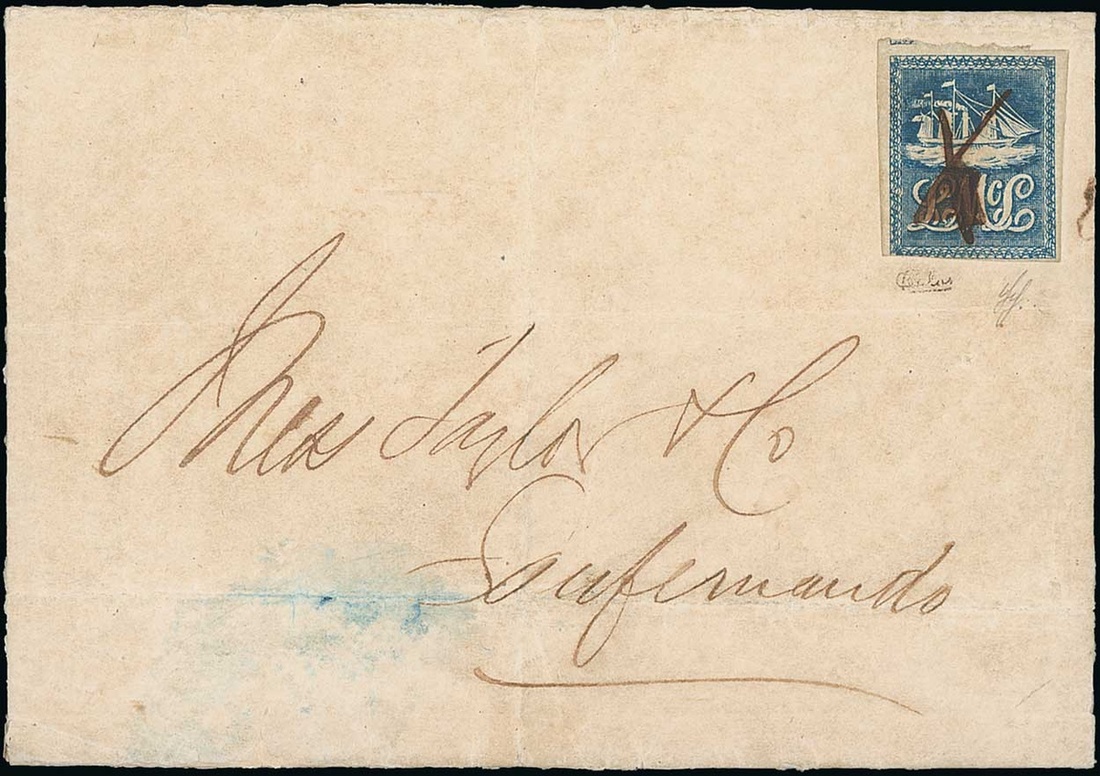 L Mc L
Taylor & Co
Sanfernando